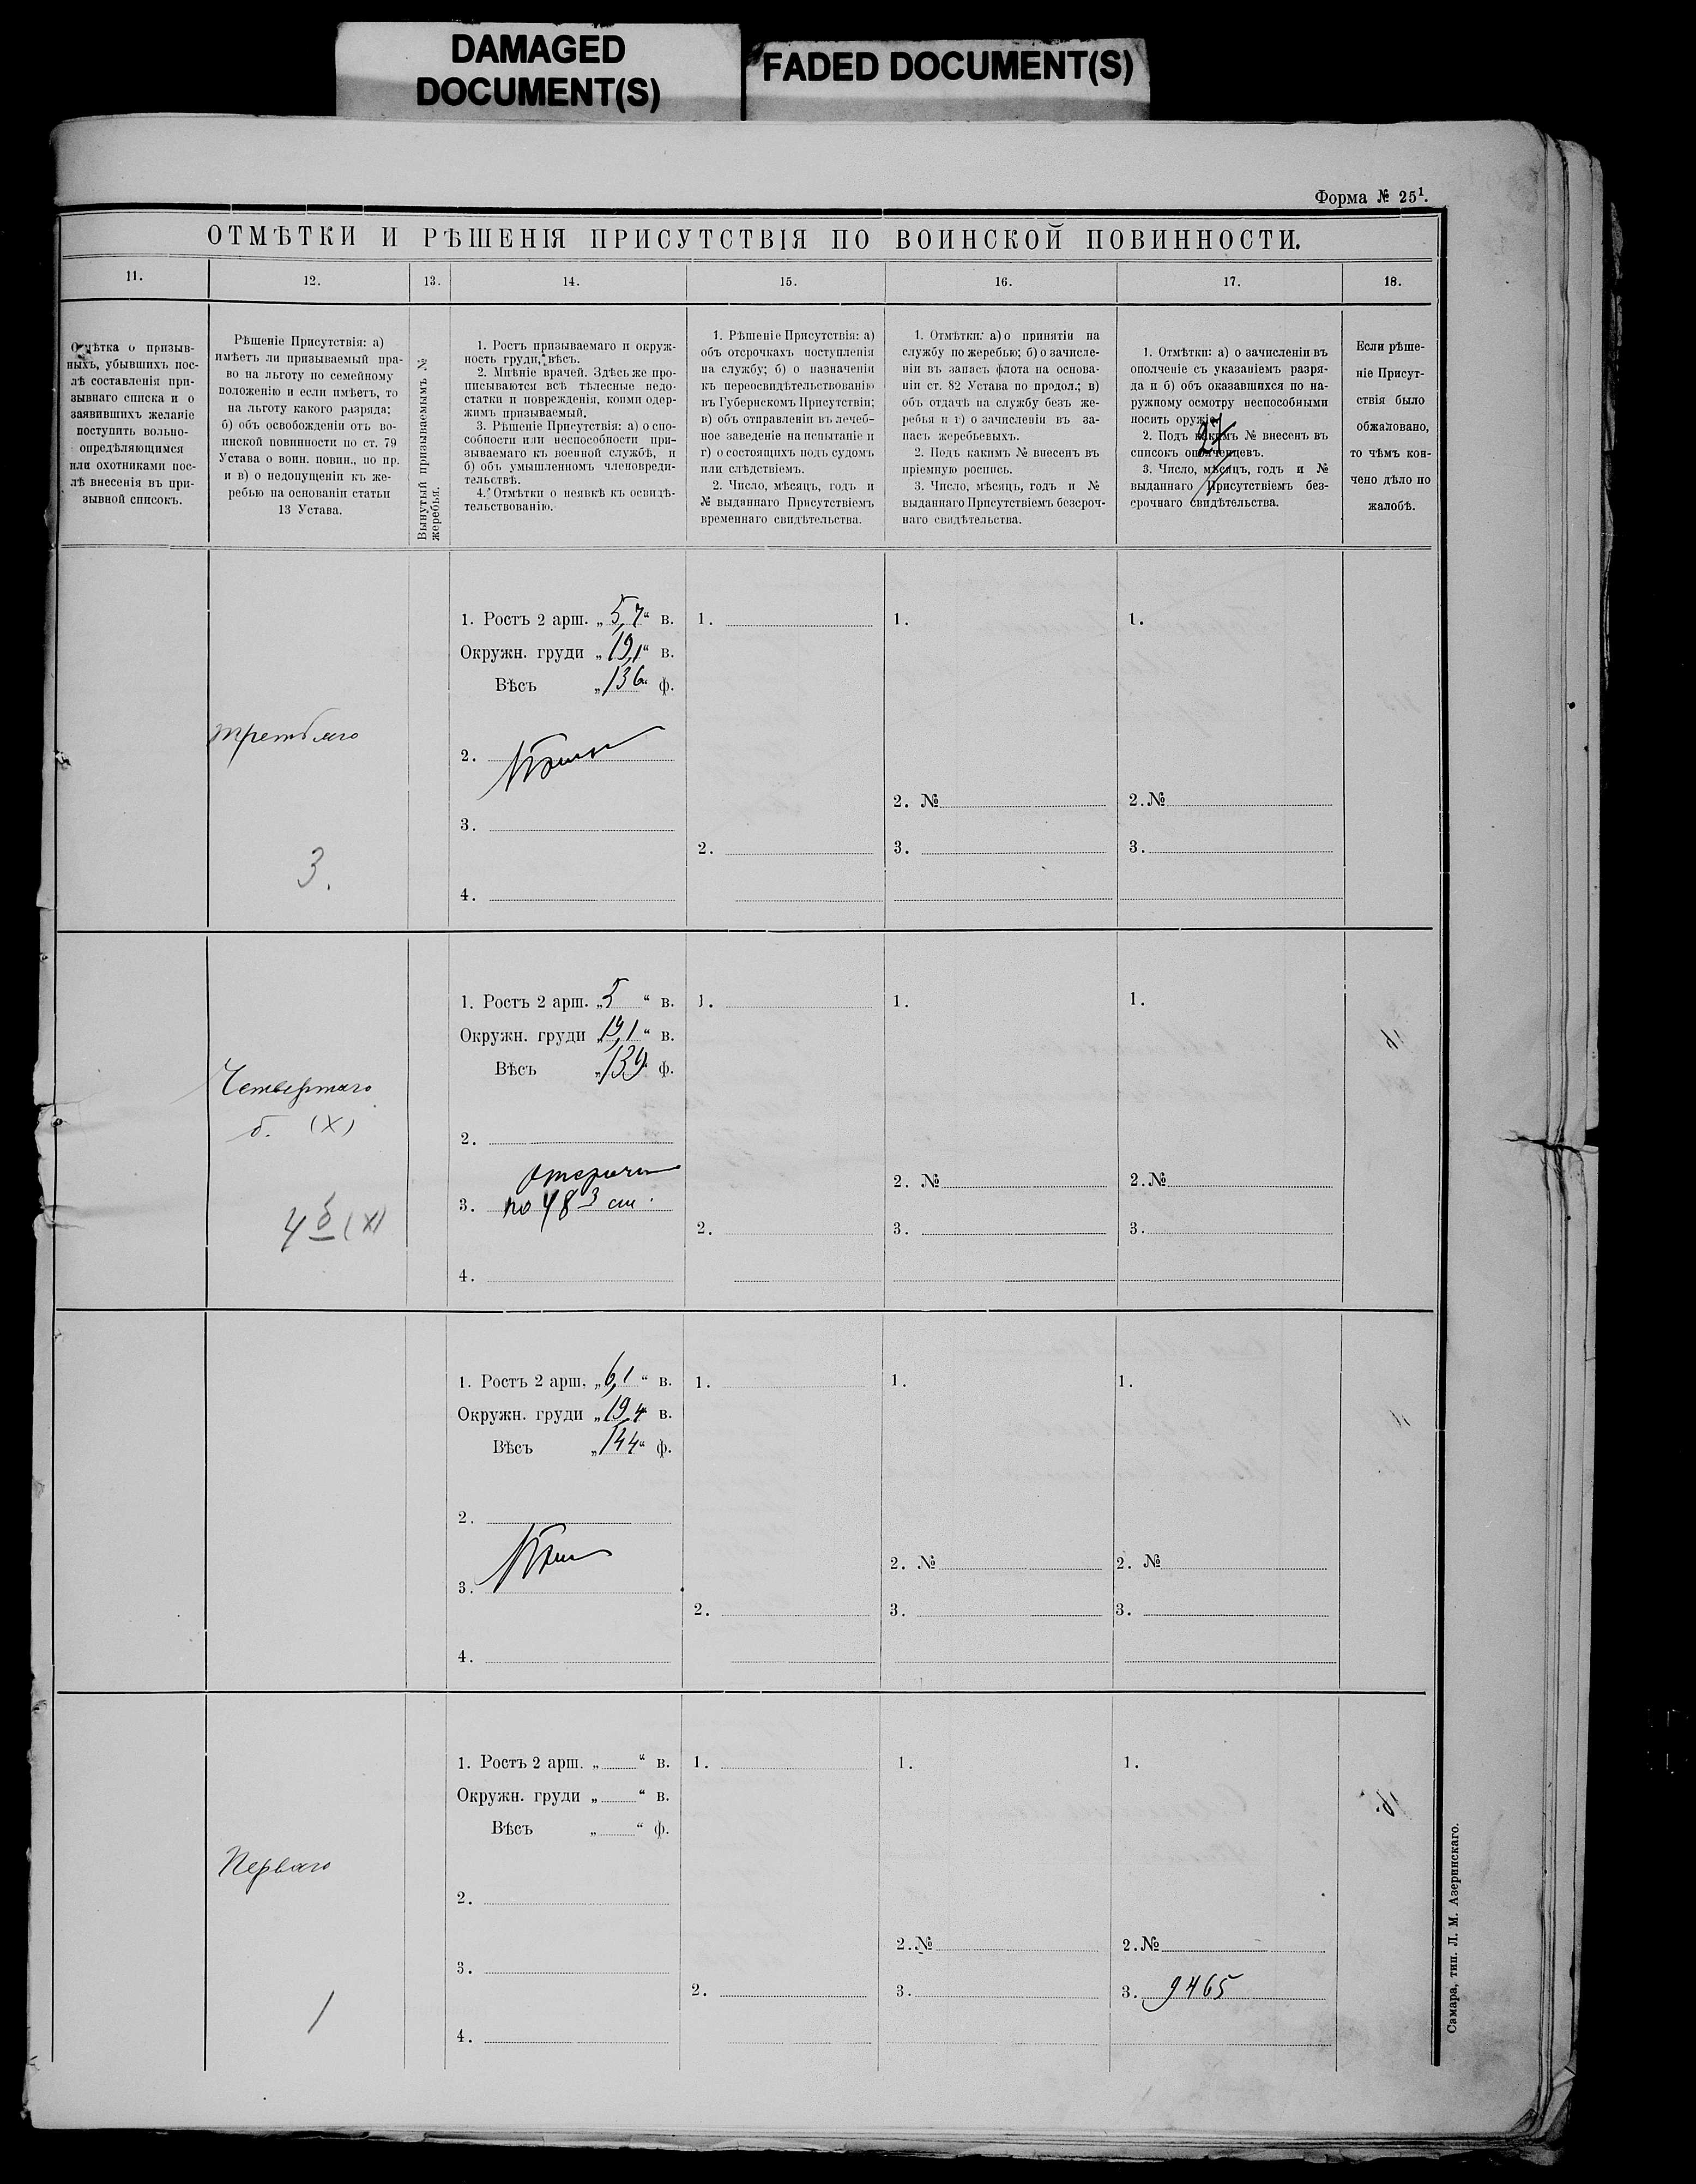 DAMAGED
DOCUMENT(S)
FADED DOCUMENT(S)
Форма № 25¹.
ОТМѢТКИ И РѢШЕНІЯ ПРИСУТСТВІЯ ПО ВОИНСКОЙ ПОВИННОСТИ.
11.
12.
13.
14.
15.
16.
17.
18.
Отмѣтка о призыв-
ныхъ, убывшихъ пос-
лѣ составленія при-
зывнаго списка и о
заявившихъ желаніе
поступить вольно-
опредѣляющимся
или охотниками пос-
лѣ внесенія въ при-
зывной списокъ.
Рѣшеніе Присутствія: а)
имѣетъ ли призываемый пра-
во на льготу по семейному
положенію и если имѣетъ, то
на льготу какого разряда;
б) объ освобожденіи отъ во-
инской повинности по ст. 79
Устава о воин. повин., по пр.
и в) о недопущеніи къ же-
ребью на основаніи статьи
13 Устава.
Вынутый призываемымъ №
жеребья.
1. Ростъ призываемаго и окруж-
ность груди, вѣсъ.
2. Мнѣніе врачей. Здѣсь же про-
писываются всѣ тѣлесные недо-
статки и поврежденія, коими одер-
жимъ призываемый.
3. Рѣшеніе Присутствія: а) о спо-
собности или неспособности при-
зываемаго къ военной службѣ, и
б) объ умышленномъ членовреди-
тельствѣ.
4. Отмѣтки о неявкѣ къ освидѣ-
тельствованію.
1. Рѣшеніе Присутствія: а)
объ отсрочкахъ поступленія
на службу; б) о назначеніи
къ переосвидѣтельствованію
въ Губернскомъ Присутствіи;
в) объ отправленіи въ лечеб-
ное заведеніе на испытаніе и
г) о состоящихъ подъ судомъ
или слѣдствіемъ.
2. Число, мѣсяцъ, годъ и
№ выданнаго Присутствіемъ
временнаго свидѣтельства.
1. Отмѣтки: а) о принятіи на
службу по жеребью; б) о зачисле-
ніи въ запасъ флота на основа-
ніи ст. 82 Устава по продол.; в)
объ отдачѣ на службу безъ же-
ребья и г) о зачисленіи въ за-
пасъ жеребьевыхъ.
2. Подъ какимъ № внесенъ въ
пріемную роспись.
3. Число, мѣсяцъ, годъ и №
выданнаго Присутствіемъ безсроч-
наго свидѣтельства.
1. Отмѣтки: а) о зачисленіи въ
ополченіе съ указаніемъ разря-
да и б) объ оказавшихся по на-
ружному осмотру неспособными
носить оружіе.
2. Подъ какимъ № внесенъ въ
списокъ ополченцевъ.
3. Число, мѣсяцъ, годъ и №
выданнаго Присутствіемъ без-
срочнаго свидѣтельства.
Если рѣше-
ніе Присут-
ствія было
обжаловано,
то чѣмъ кон-
чено дѣло по
жалобѣ.
третьяго
3.
1. Ростъ 2 арш. „ 5,7 “ в.
Окружн. груди „ 19,1 “ в.
Вѣсъ „ 136 “ ф.
2.
3.
4.
1.
2.
1.
2. №
3.
1.
2. №
3.
Четвертаго
б. (X)
4 б (X)
1. Ростъ 2 арш. „ 5 “ в.
Окружн. груди „ 19,1 “ в.
Вѣсъ „ 139 “ ф.
2.
отсрочи
3. по 48 3 ст.
4.
1.
2.
1.
2. №
3.
1.
2. №
3.
1. Ростъ 2 арш. „ 6,1 “ в.
Окружн. груди „ 19,4 “ в.
Вѣсъ „ 144 “ ф.
2.
3.
4.
1.
2.
1.
2. №
3.
1.
2. №
3.
Перваго
1
1. Ростъ 2 арш. „ “ в.
Окружн. груди „ “ в.
Вѣсъ „ “ ф.
2.
3.
4.
1.
2.
1.
2. №
3.
1.
2. №
3. 9465
Самара, тип. Л. М. Азеринскаго.